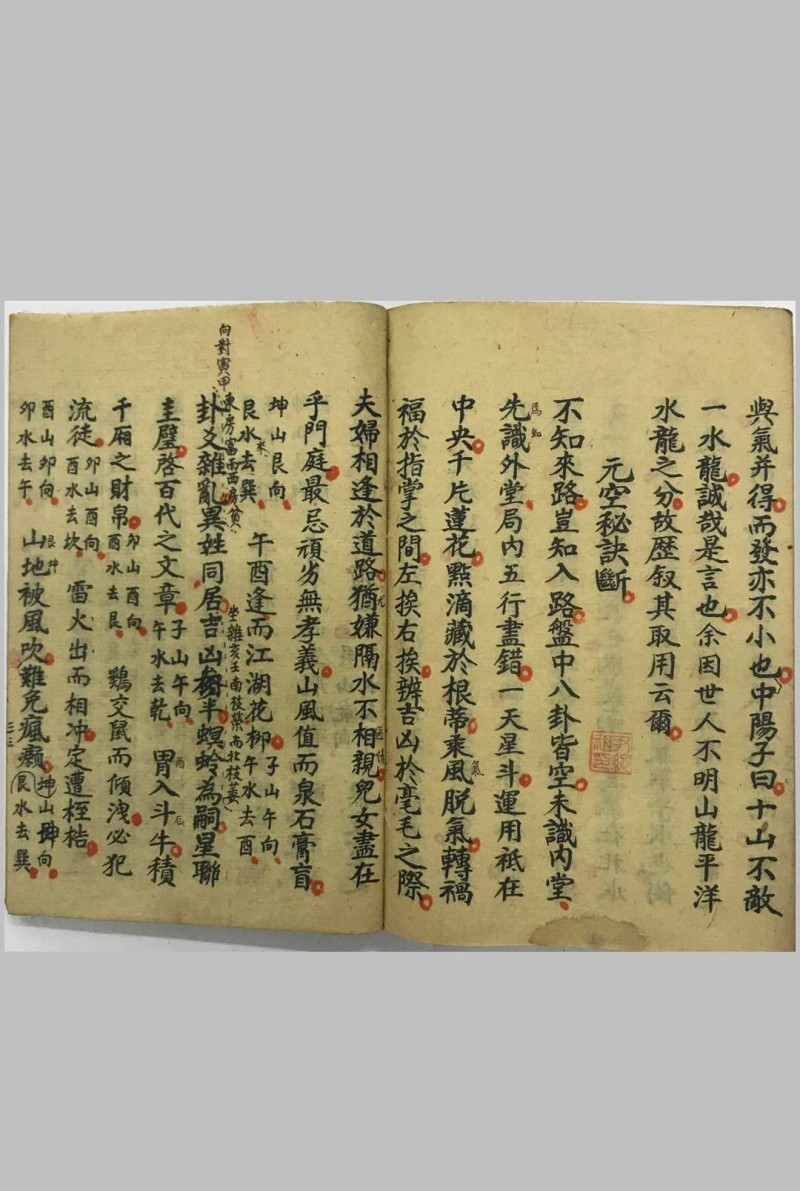 與氣并得而發亦不小也中陽子曰十山不敵
一水龍誠哉是言也余因世人不明山龍平洋
水龍之分故歷叙其取用云爾
元空秘訣斷
不知來路豈知入路盤中八卦皆空未識內堂
先識外堂局內五行盡錯一天星斗運用祗在
中央千片蓮花㸃滴藏於根蒂乘風脱氣轉禍
福於指掌之間左挨右挨辨吉凶於毫毛之際
夫婦相逢於道路猶嫌隔水不相親兒女盡在
乎門庭最忌頑劣無孝義山風值而泉石膏肓
坤山艮向
艮水去巽
午酉逢而江湖花柳
子山午向
午水去酉
向對寅甲
東房富而西房貧
卦爻雜亂異姓同居吉凶半螟蛉為嗣星聯
坐雜亥壬南枝榮而北枝萎
圭璧啓百代之文章
子山午向
午水去乾
胃入斗牛積
千廂之財帛
卯山酉向
酉水去艮
鷄交鼠而傾洩必犯
流徒
卯山酉向
酉水去坎
雷火出而相冲定遭桎梏
酉山卯向
卯水去午
山地被風吹難免瘋癲
坤山艮向
艮水去巽